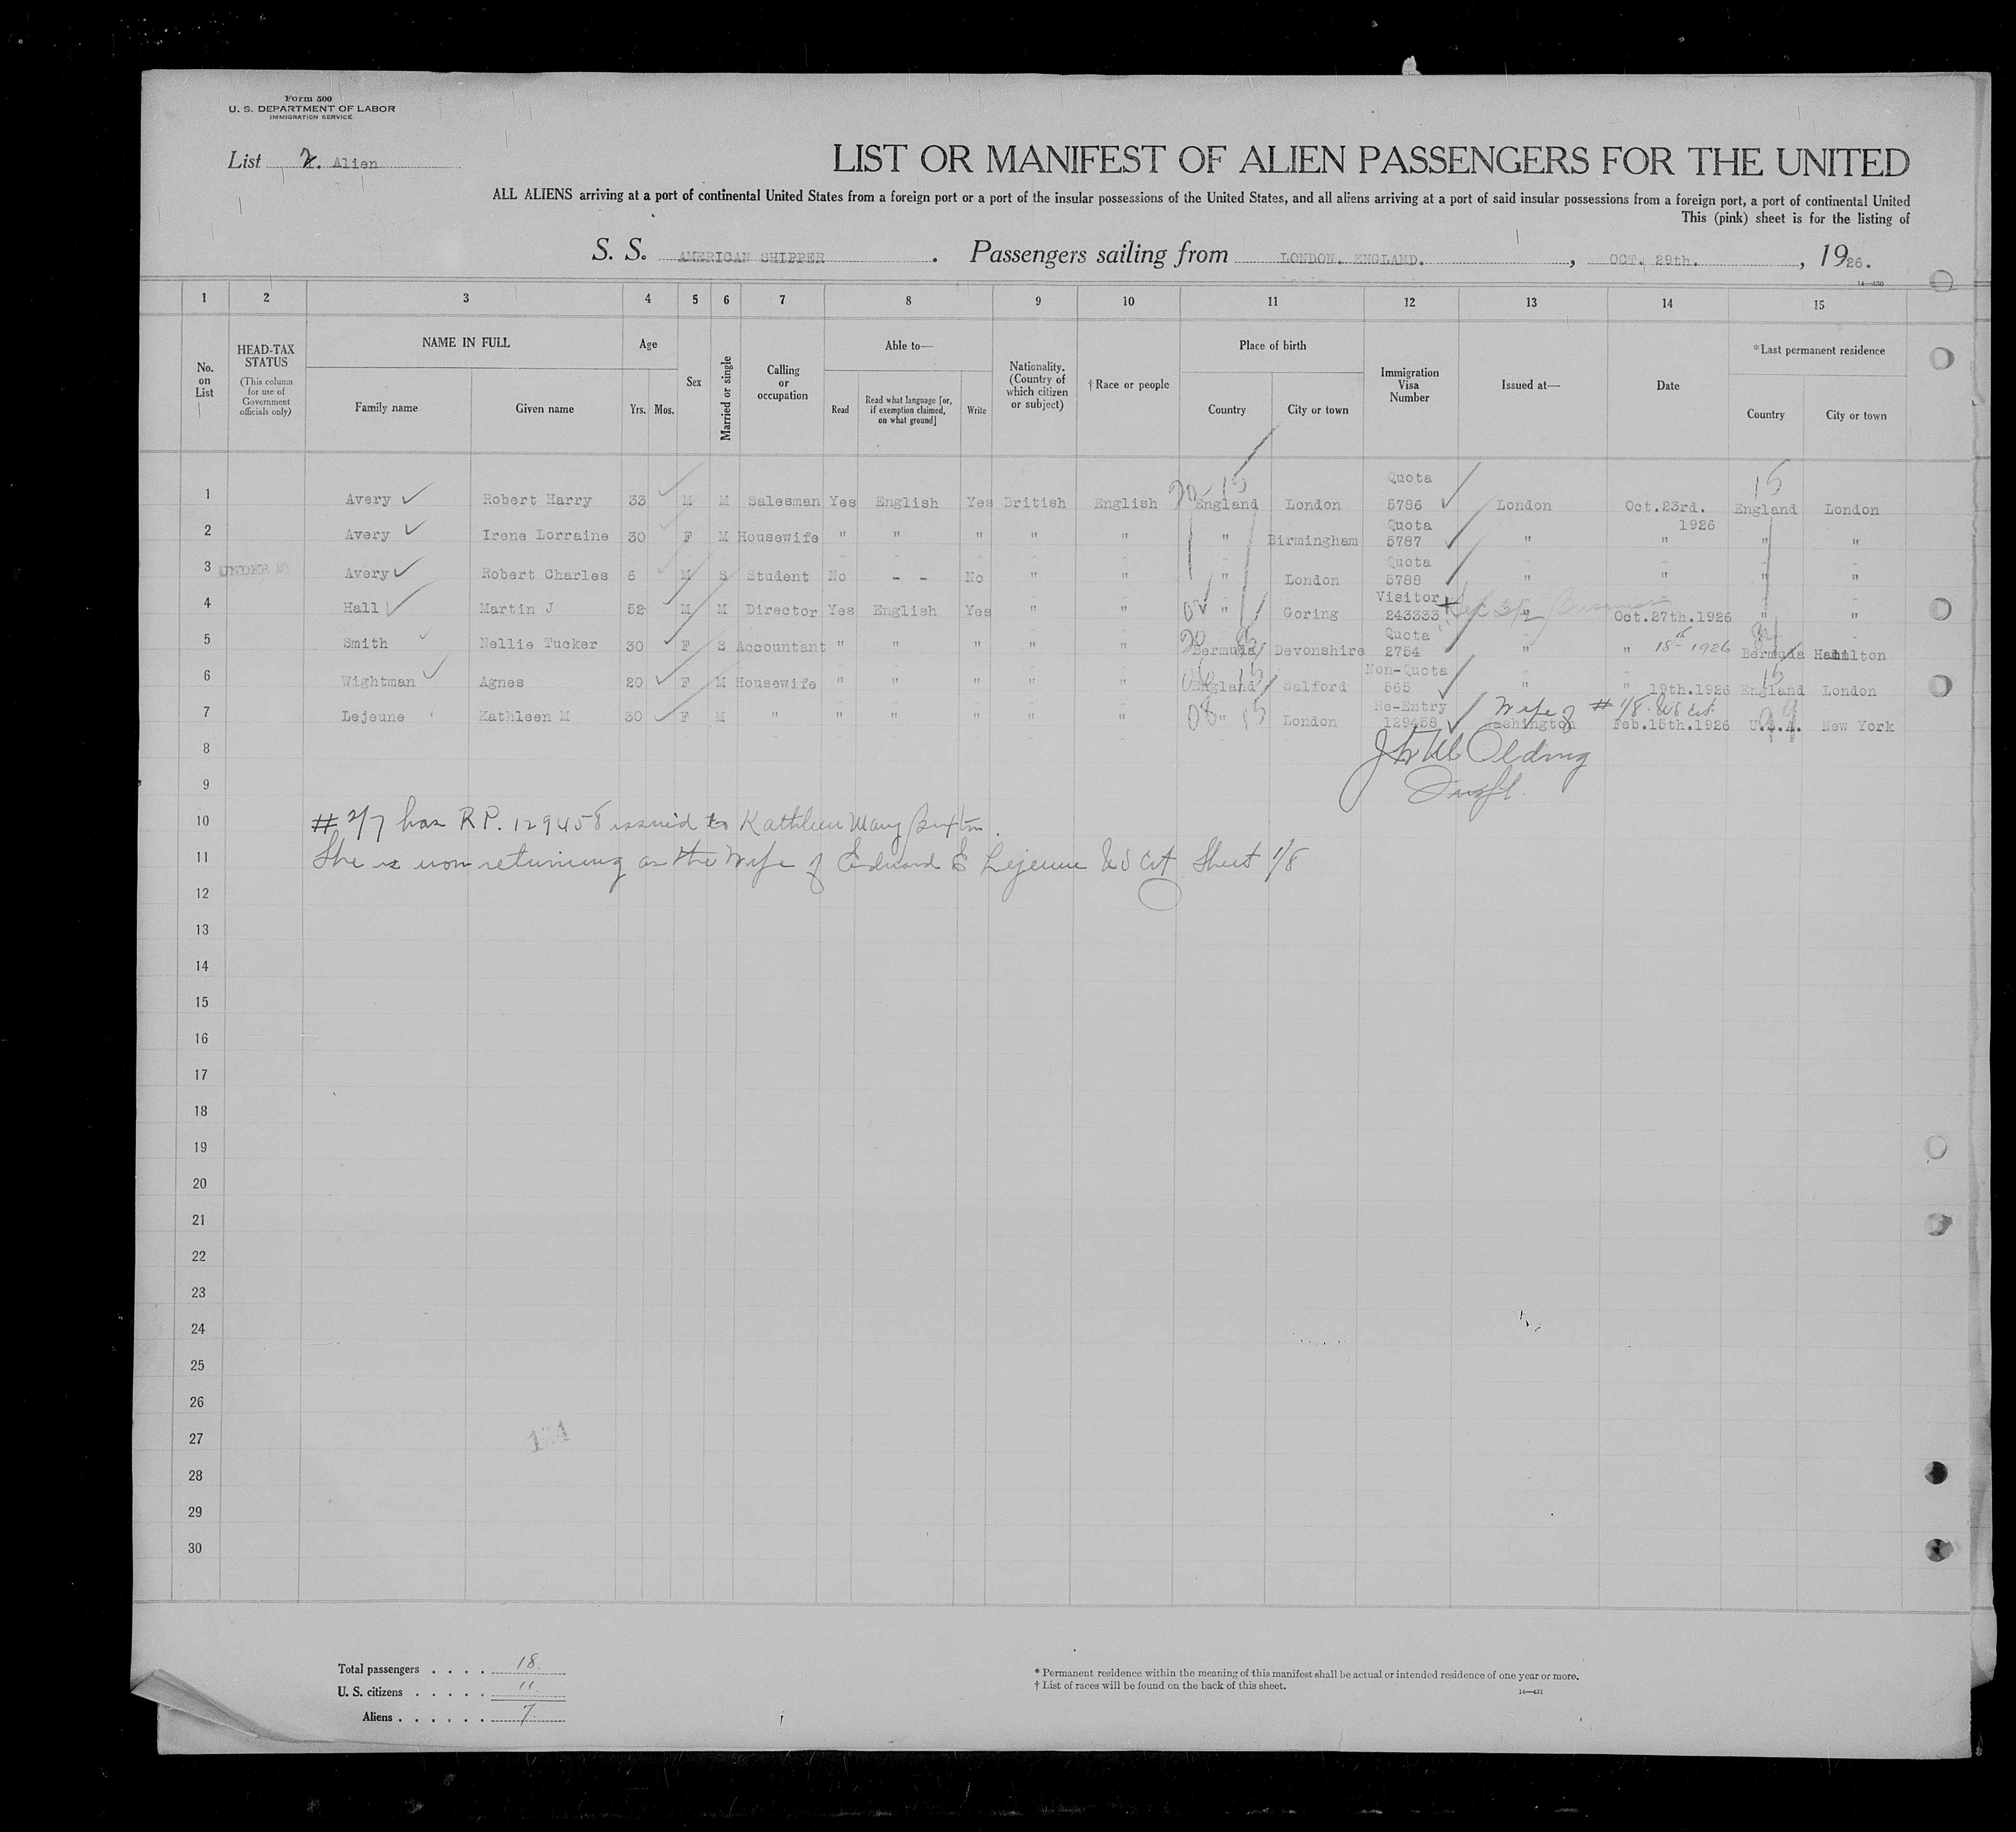 Form 500
U. S. DEPARTMENT OF LABOR
IMMIGRATION SERVICE
List 2. Alien
LIST OR MANIFEST OF ALIEN PASSENGERS FOR THE UNITED
ALL ALIENS arriving at a port of continental United States from a foreign port or a port of the insular possessions of the United States, and all aliens arriving at a port of said insular possessions from a foreign port, a port of continental United
This (pink) sheet is for the listing of
S. S. AMERICAN SHIPPER. Passengers sailing from LONDON. ENGLAND., OCT. 29th., 1926.
14—430
1 2 3 4 5 6 7 8 9 10 11 12 13 14 15
No. on List
HEAD-TAX STATUS (This column for use of Government officials only)
NAME IN FULL Family name Given name
Age Yrs. Mos.
Sex
Married or single
Calling or occupation
Able to— Read Read what language [or, if exemption claimed, on what ground] Write
Nationality. (Country of which citizen or subject)
† Race or people
Place of birth Country City or town
Immigration Visa Number
Issued at—
Date
*Last permanent residence Country City or town
1 Avery Robert Harry 33 M M Salesman Yes English Yes British English England London Quota 5786 London Oct.23rd. 1926 England London
2 Avery Irene Lorraine 30 F M Housewife " " " " " " Birmingham Quota 5787 " " " "
3 UNDER Avery Robert Charles 6 M S Student No - - No " " " London Quota 5788 " " " "
4 Hall Martin J 52 M M Director Yes English Yes " " " Goring Visitor 243333 " Oct.27th.1926 " "
5 Smith Nellie Tucker 30 F S Accountant " " " " " Bermuda Devonshire Quota 2754 " " 18th 1926 Bermuda Hamilton
6 Wightman Agnes 20 F M Housewife " " " " " England Salford Non-Quota 565 " " 19th.1926 England London
7 Lejeune Kathleen M 30 F M " " " " " " " London Re-Entry 129458 Washington Feb.15th.1926 U.S.A. New York
Wife of # 1/8 US Cit.
8
9
10 # 2/7 has R.P. 129458 issued to Kathleen Mary
11 She is now returning as the Wife of Edward E Lejeune US Cit Sheet 1/8
12
13
14
15
16
17
18
19
20
21
22
23
24
25
26
27
28
29
30
Total passengers . . . . 18
U. S. citizens . . . . . 11
Aliens . . . . . . 7
* Permanent residence within the meaning of this manifest shall be actual or intended residence of one year or more.
† List of races will be found on the back of this sheet.
14—431